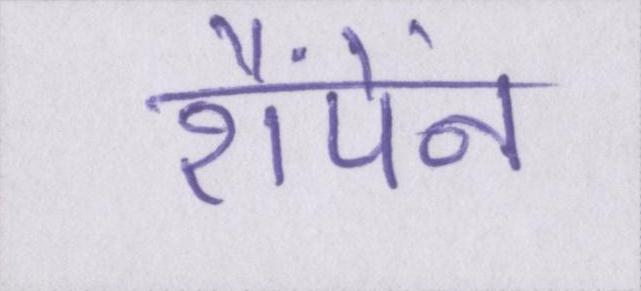 शैंपेंन